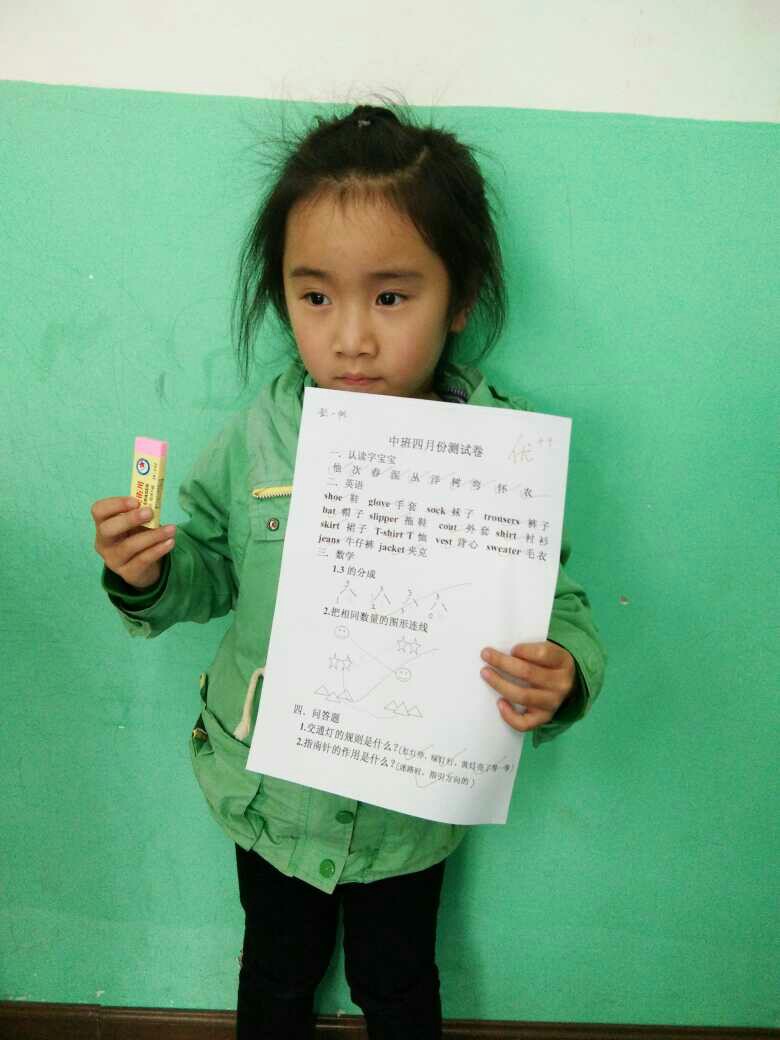 中班四月份测试卷
优++
一、认读字宝宝
他 次 春 泥 丛 洋 树 弯 怀 衣
二、英语
shoe 鞋 glove 手套 sock 袜子 trousers 裤子
hat 帽子 slipper 拖鞋 coat 外套 shirt 衬衫
skirt 裙子 T-shirt T 恤 vest 背心 sweater 毛衣
jeans 牛仔裤 jacket 夹克
三、数学
1.3 的分成
3 3 3 3
1 2 3 0
2.把相同数量的图形连线
四、问答题
1.交通灯的规则是什么?(红灯停,绿灯行,黄灯亮了等一等)
2.指南针的作用是什么?(迷路时,指引方向的)